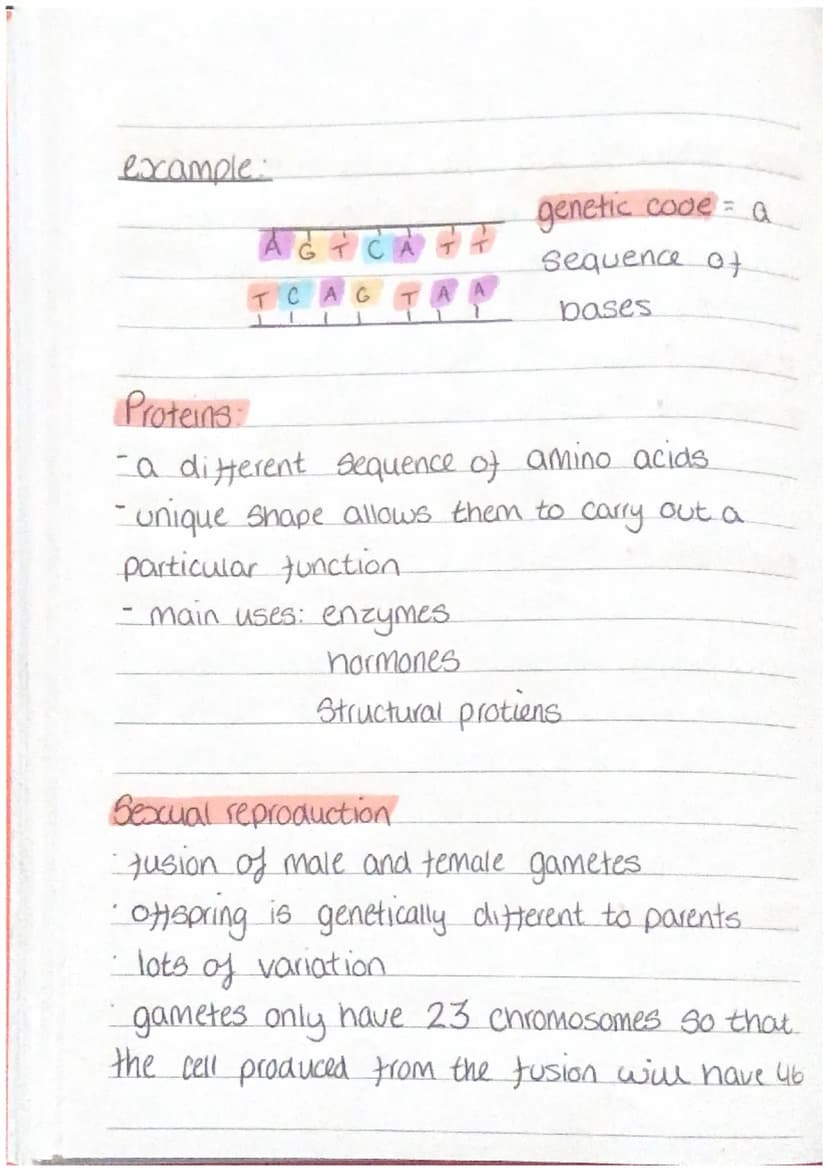 example:
genetic code = a
A G T C A T T
sequence of
T C A G T A A
bases
Proteins:
- a different sequence of amino acids
- unique shape allows them to carry out a
particular function
- main uses: enzymes
hormones
Structural protiens
Sexual reproduction
· fusion of male and female gametes
· offspring is genetically different to parents
· lots of variation
· gametes only have 23 chromosomes so that
the cell produced from the fusion will have 46